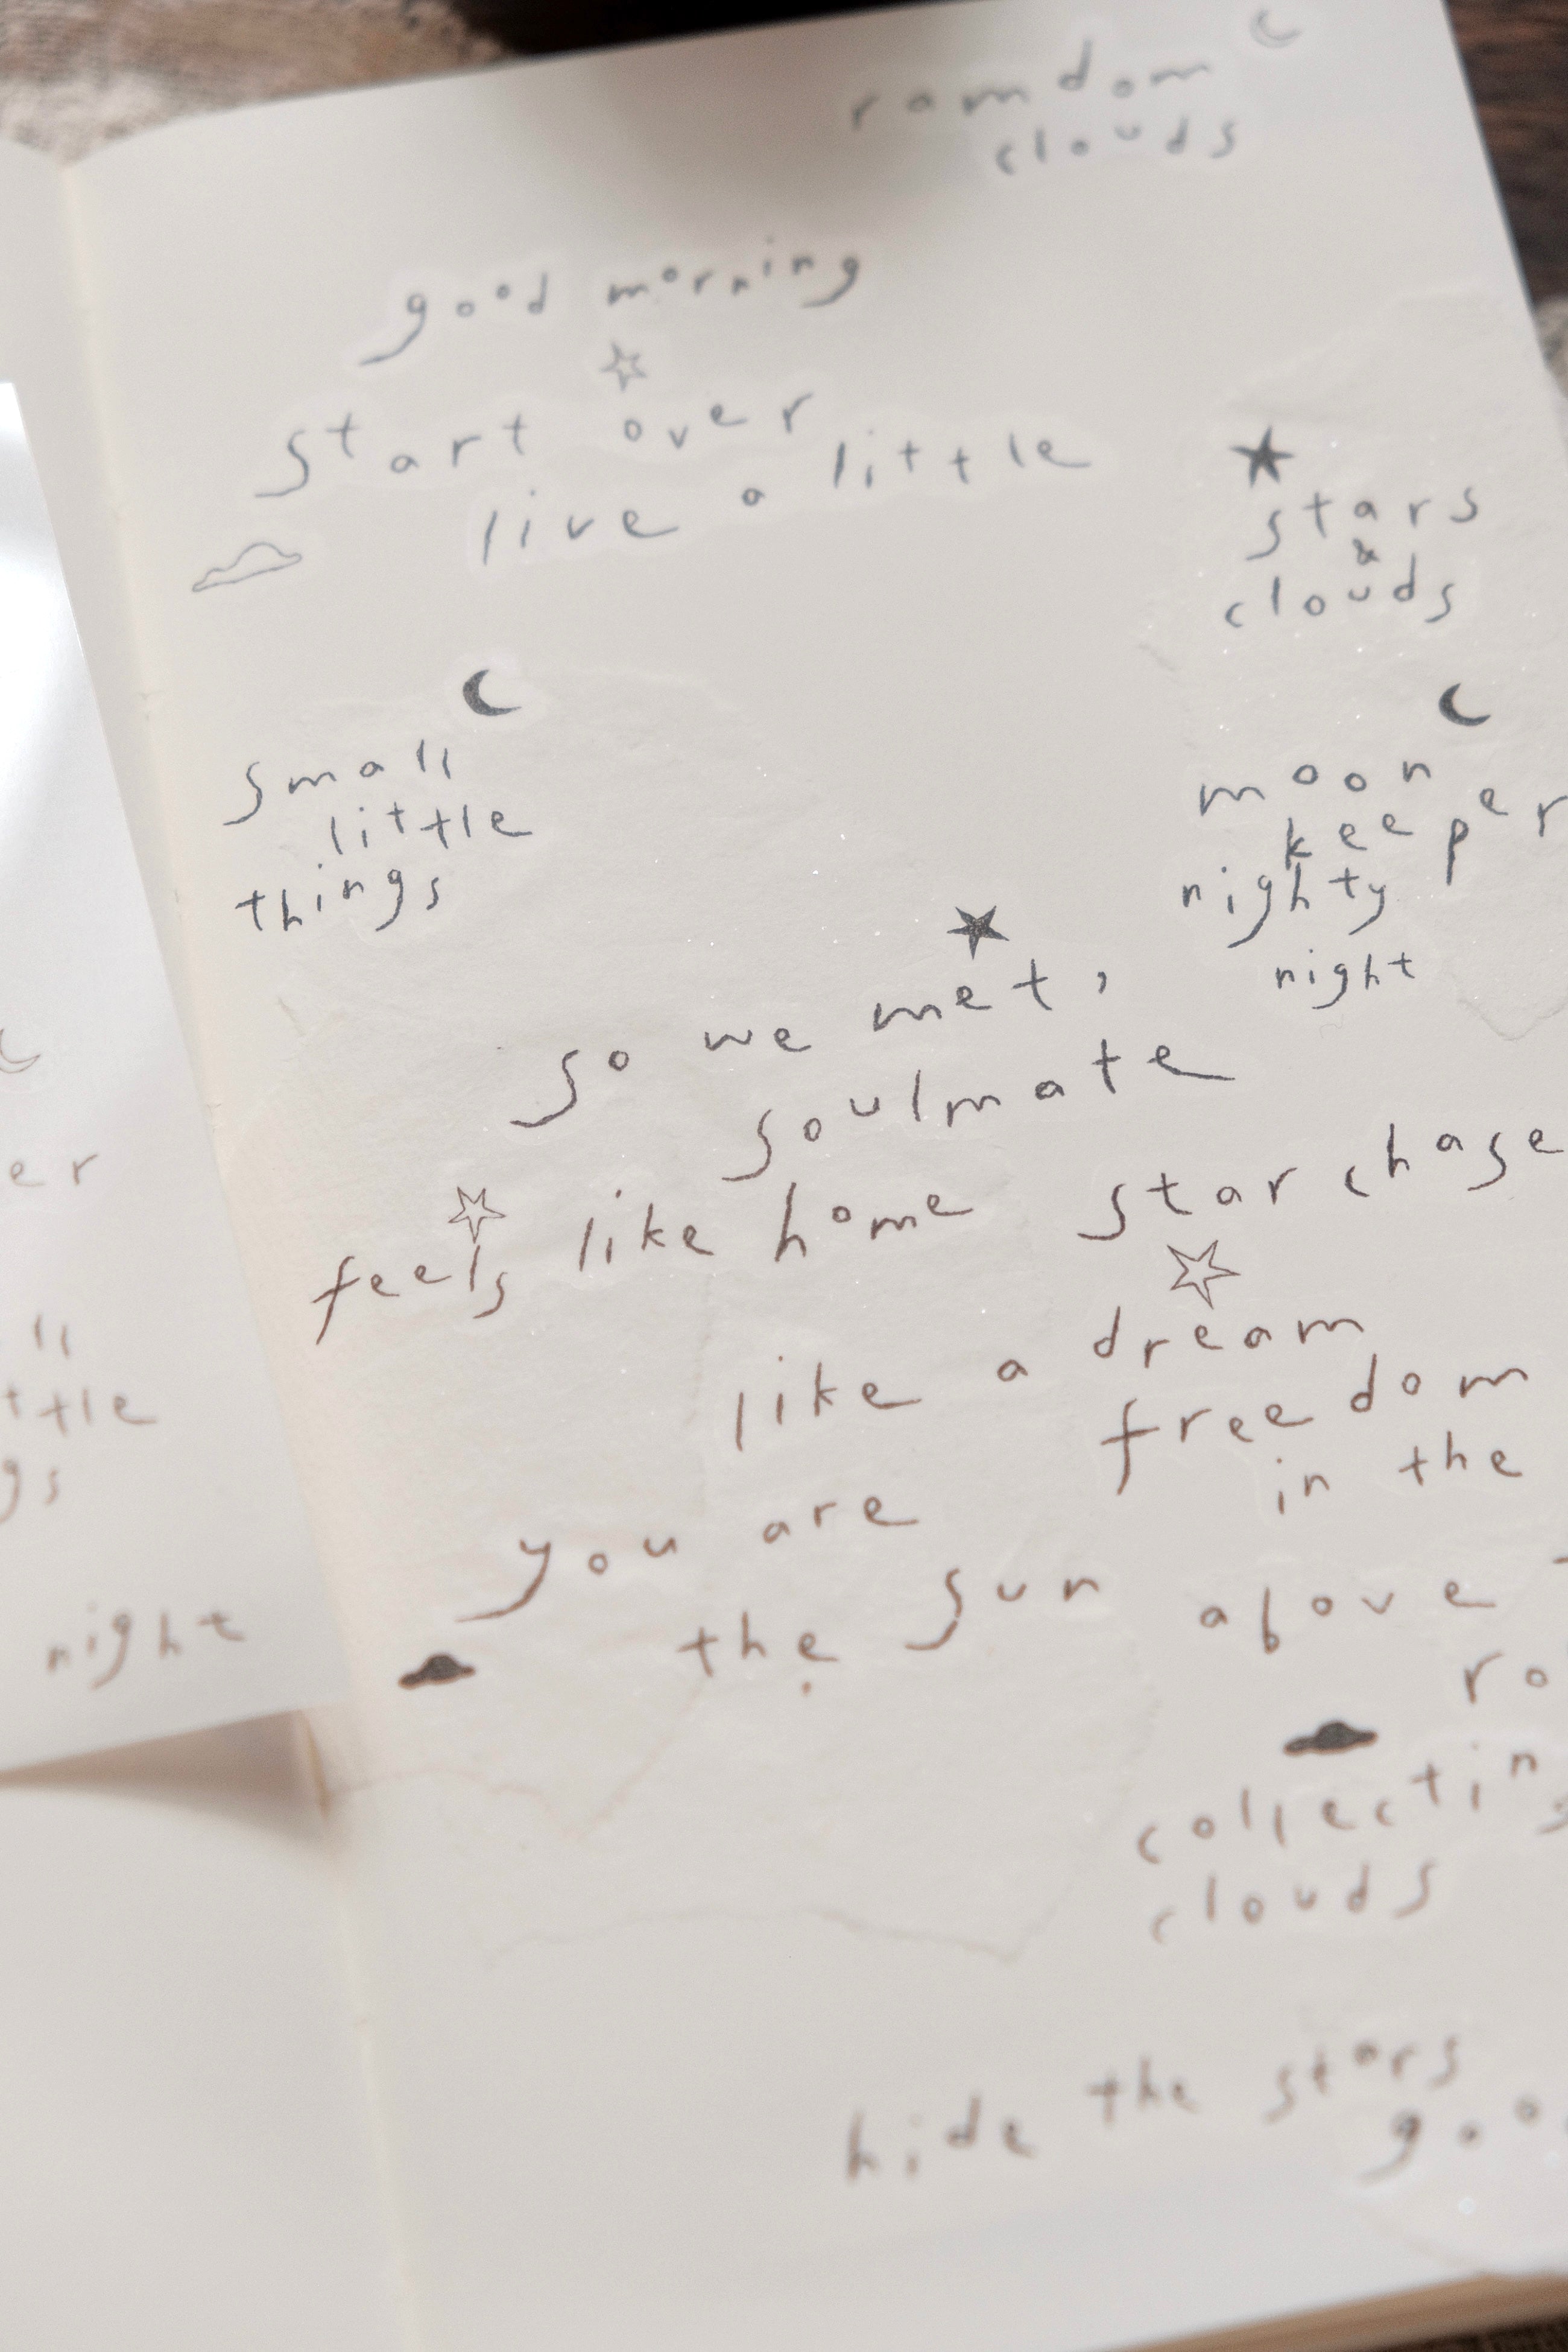 ramdom
clouds
good morning
start over
live a little
stars
&
clouds
small
little
things
moon
keeper
nighty
night
so we met,
soulmate
feels like home
star chase
like a dream
freedom
in the
you are
the sun above
ro
collectin
clouds
hide the stars
goo
er
ll
ttle
gs
night